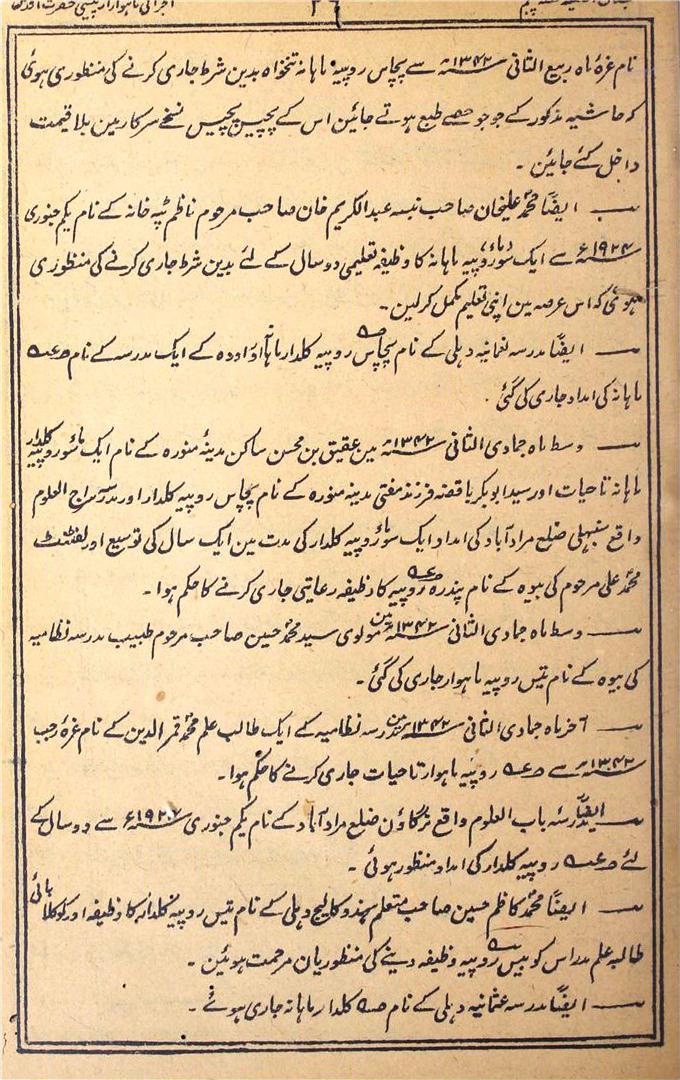 ۳۶
نام غرۂ ماہ ربیع الثانی ۱۳۴۲ھ سے پچاس روپیہ ماہانہ تنخواہ بدین شرط جاری کرنے کی منظوری ہوئی
کہ حاشیہ مذکور کے جو جو حصے طبع ہوتے جائین اس کے پچیس پچیس نسخے سرکار مین بلا قیمت
داخل کئے جائین ۔
ایضاً محمد علیخان صاحب نبسہ عبدالکریم خان صاحب مرحوم ناظم ٹپہ خانہ کے نام یکم جنوری
۱۹۲۴ء سے ایک سو روپیہ ماہانہ کا وظیفہ تعلیمی دو سال کے لئے بدین شرط جاری کرنے کی منظوری
ہوئی کہ اس عرصہ مین اپنی تعلیم مکمل کرلین ۔
ایضاً مدرسہ نعمانیہ دہلی کے نام پچاس روپیہ کلدار ماہانہ اور اودہ کے ایک مدرسہ کے نام
ماہانہ کی امداد جاری کی گئی ۔
وسط ماہ جمادی الثانی ۱۳۴۲ھ مین عقیق بن محسن ساکن مدینۂ منورہ کے نام ایک سو روپیہ کلدار
ماہانہ تاحیات اور سید ابوبکر بافضہ فرزند مفتی مدینہ منورہ کے نام پچاس روپیہ کلدار اور مدرسہ سراج العلوم
واقع سنبھلی ضلع مرادآباد کی امداد ایک سو روپیہ کلدار کی مدت مین ایک سال کی توسیع اور لفٹنٹ
محمد علی مرحوم کی بیوہ کے نام پندرہ روپیہ کا وظیفہ رعایتی جاری کرنے کا حکم ہوا ۔
وسط ماہ جمادی الثانی ۱۳۴۲ھ مین مولوی سید محمد حسین صاحب مرحوم طبیب مدرسہ نظامیہ
کی بیوہ کے نام تیس روپیہ ماہوار جاری کی گئی ۔
آخر ماہ جمادی الثانی ۱۳۴۲ھ مین مدرسہ نظامیہ کے ایک طالب علم محمد قمر الدین کے نام غرۂ رجب
۱۳۴۲ھ سے روپیہ ماہوار تاحیات جاری کرنے کا حکم ہوا ۔
ایضاً مدرسہ باب العلوم واقع ضلع مرادآباد کے نام یکم جنوری ۱۹۲۷ء سے دو سال کے
لئے روپیہ کلدار کی امداد منظور ہوئی ۔
ایضاً محمد کاظم حسین صاحب متعلم ہندو کالیج دہلی کے نام تیس روپیہ کلدار کا وظیفہ اور کوکلا بائی
طالبہ علم مدراس کو بیس روپیہ وظیفہ دینے کی منظوریان مرحمت ہوئین ۔
ایضاً مدرسہ عثمانیہ دہلی کے نام کلدار ماہانہ جاری ہوئے ۔